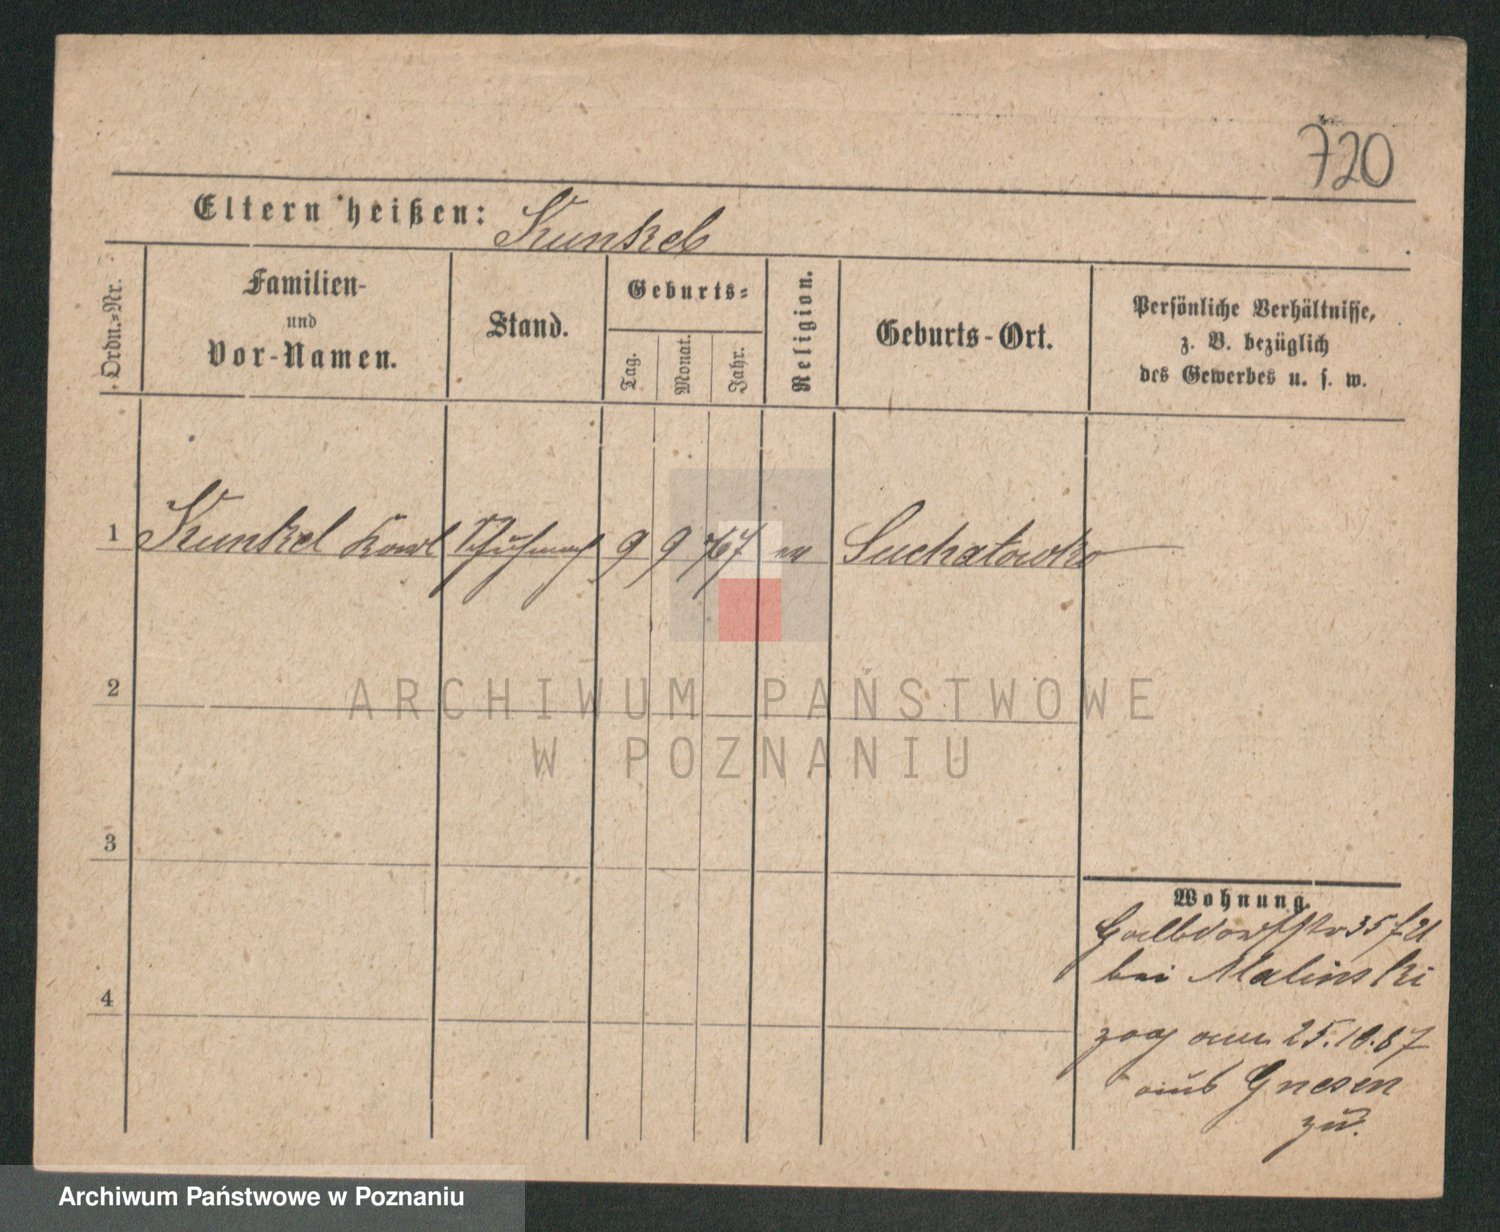 720
Eltern heißen: Kunkel
Ordn.-Nr.
Familien-
und
Vor-Namen.
Stand.
Geburts-
Tag.
Monat.
Jahr.
Religion.
Geburts-Ort.
Persönliche Verhältnisse,
z. B. bezüglich
des Gewerbes u. s. w.
1 Kunkel Karl Schuhmach 9 9 67 Suchatowko
2
3
4
ARCHIWUM PAŃSTWOWE
W POZNANIU
Wohnung.
35
bei Malinski
zog am 25.10.87
aus Gnesen
zu.
Archiwum Państwowe w Poznaniu